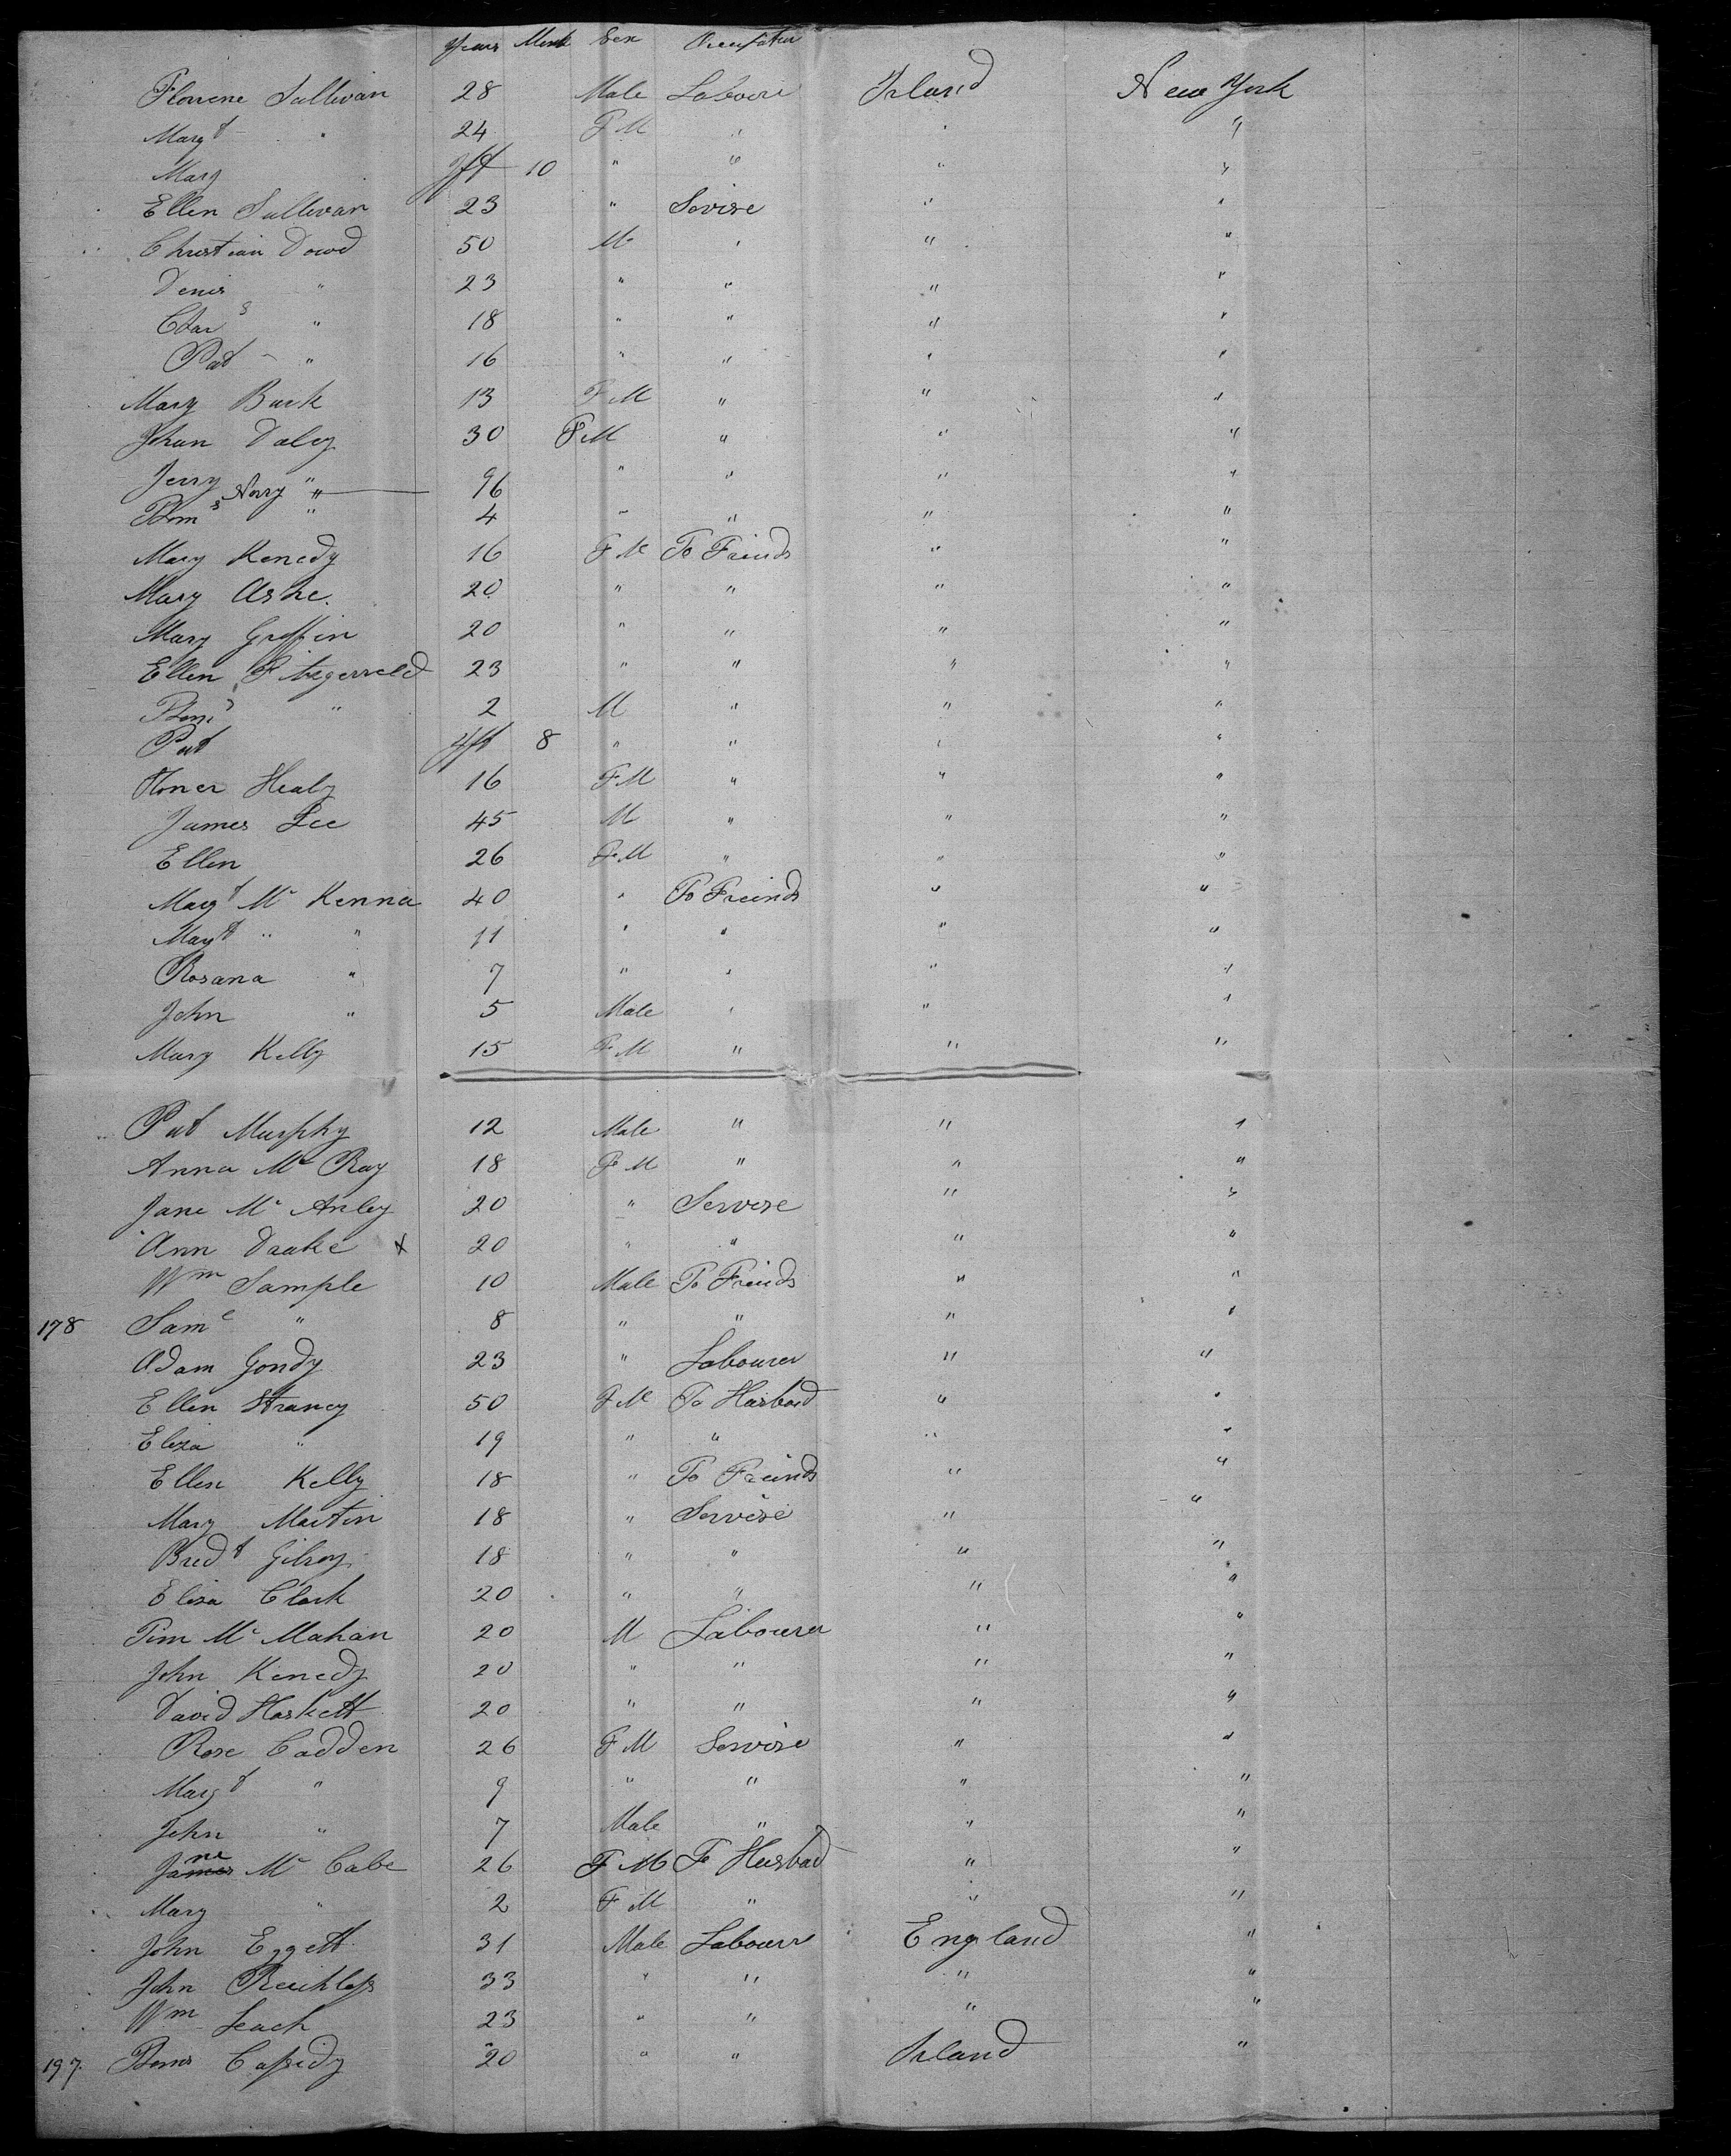 Years Month Sex Occupation
Florene Sullivan 28 Male Laboure Irland New York
Margt " 24 F M " " "
Mary Jft 10 " " " "
Ellen Sullivan 23 " Sevise " "
Christian Dowd 50 M " " "
Denis " 23 " " " "
Chars " 18 " " " "
Pat " 16 " " " "
Mary Burk 13 F M " " "
Johan Daley 30 F M " " "
Jerry " Nory " 96 " " " "
Thoms " 4 " " " "
Mary Kenedy 16 F M To Frinds " "
Mary Ashe. 20 " " " "
Mary Griffin 20 " " " "
Ellen Fitzgerreld 23 " " " "
" 2 M " " "
Pat Jft 8 " " " "
Honer Healy 16 F M " " "
James Lee 45 M " " "
Ellen 26 F M " " "
Margt Mc Kenna 40 " To Freinds " "
Margt " " 11 " " " "
Rosana " 7 " " " "
John " 5 Male " " "
Mary Kelly 15 F M " " "
Pat Murphy 12 Male " " "
Anna Mc Ray 18 F M " " "
Jane Mc Anley 20 " Servese " "
Ann Drake x 20 " " " "
Wm Sample 10 Male To Frinds " "
178 Saml " 8 " " " "
Adam Gondy 23 " Labourer " "
Ellen Strancy 50 F M To Husbad " "
Eliza " 19 " " " "
Ellen Kelly 18 " To Freinds " "
Mary Martin 18 " Servise " "
Bredt Gilroy 18 " " " "
Elisa Clark 20 " " " "
Tim Mc Mahan 20 M Labourer " "
John Kenedy 20 " " " "
David Haskett 20 " " " "
Rose Cadden 26 F M Servise " "
Margt " 9 " " " "
John " 7 Male " " "
Jane Mc Cabe 26 F M To Husbad " "
Mary " 2 F M " " "
John Eggett 31 Male Labourr England "
John 33 " " " "
Wm Leach 23 " " " "
197. Cassidy 20 " " Irland "